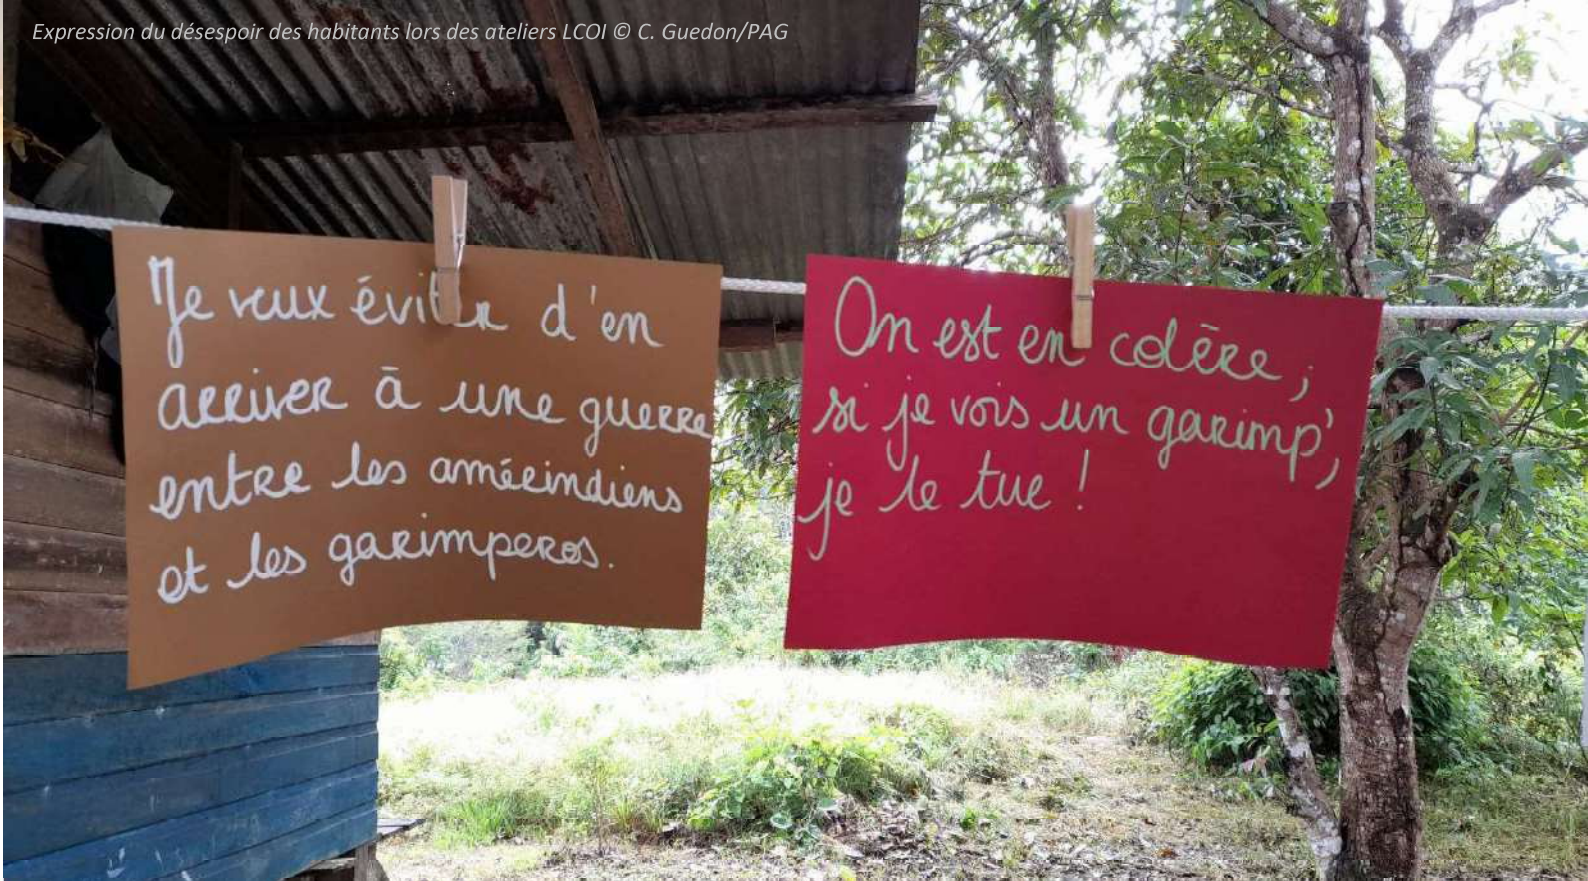 Expression du désespoir des habitants lors des ateliers LCOI © C. Guedon/PAG
Je veux éviter d'en
arriver à une guerre
entre les amérindiens
et les garimperos.
On est en colère,
si je vois un garimp',
je le tue !